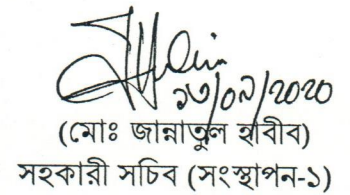 ১৩/০৯/২০২০
(মোঃ জান্নাতুল হাবীব)
সহকারী সচিব (সংস্থাপন-১)